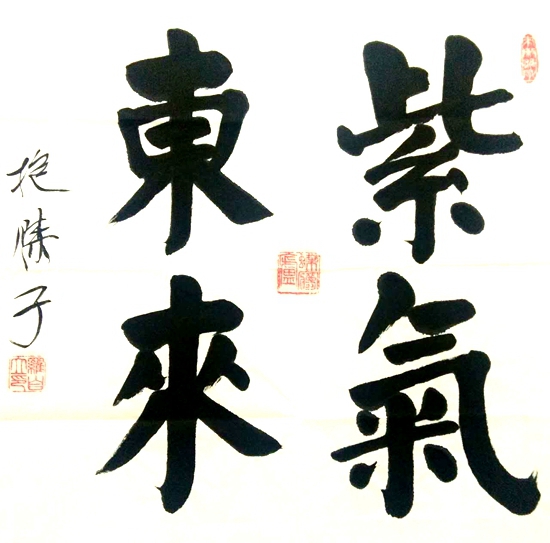 紫氣
東來
抱膝子